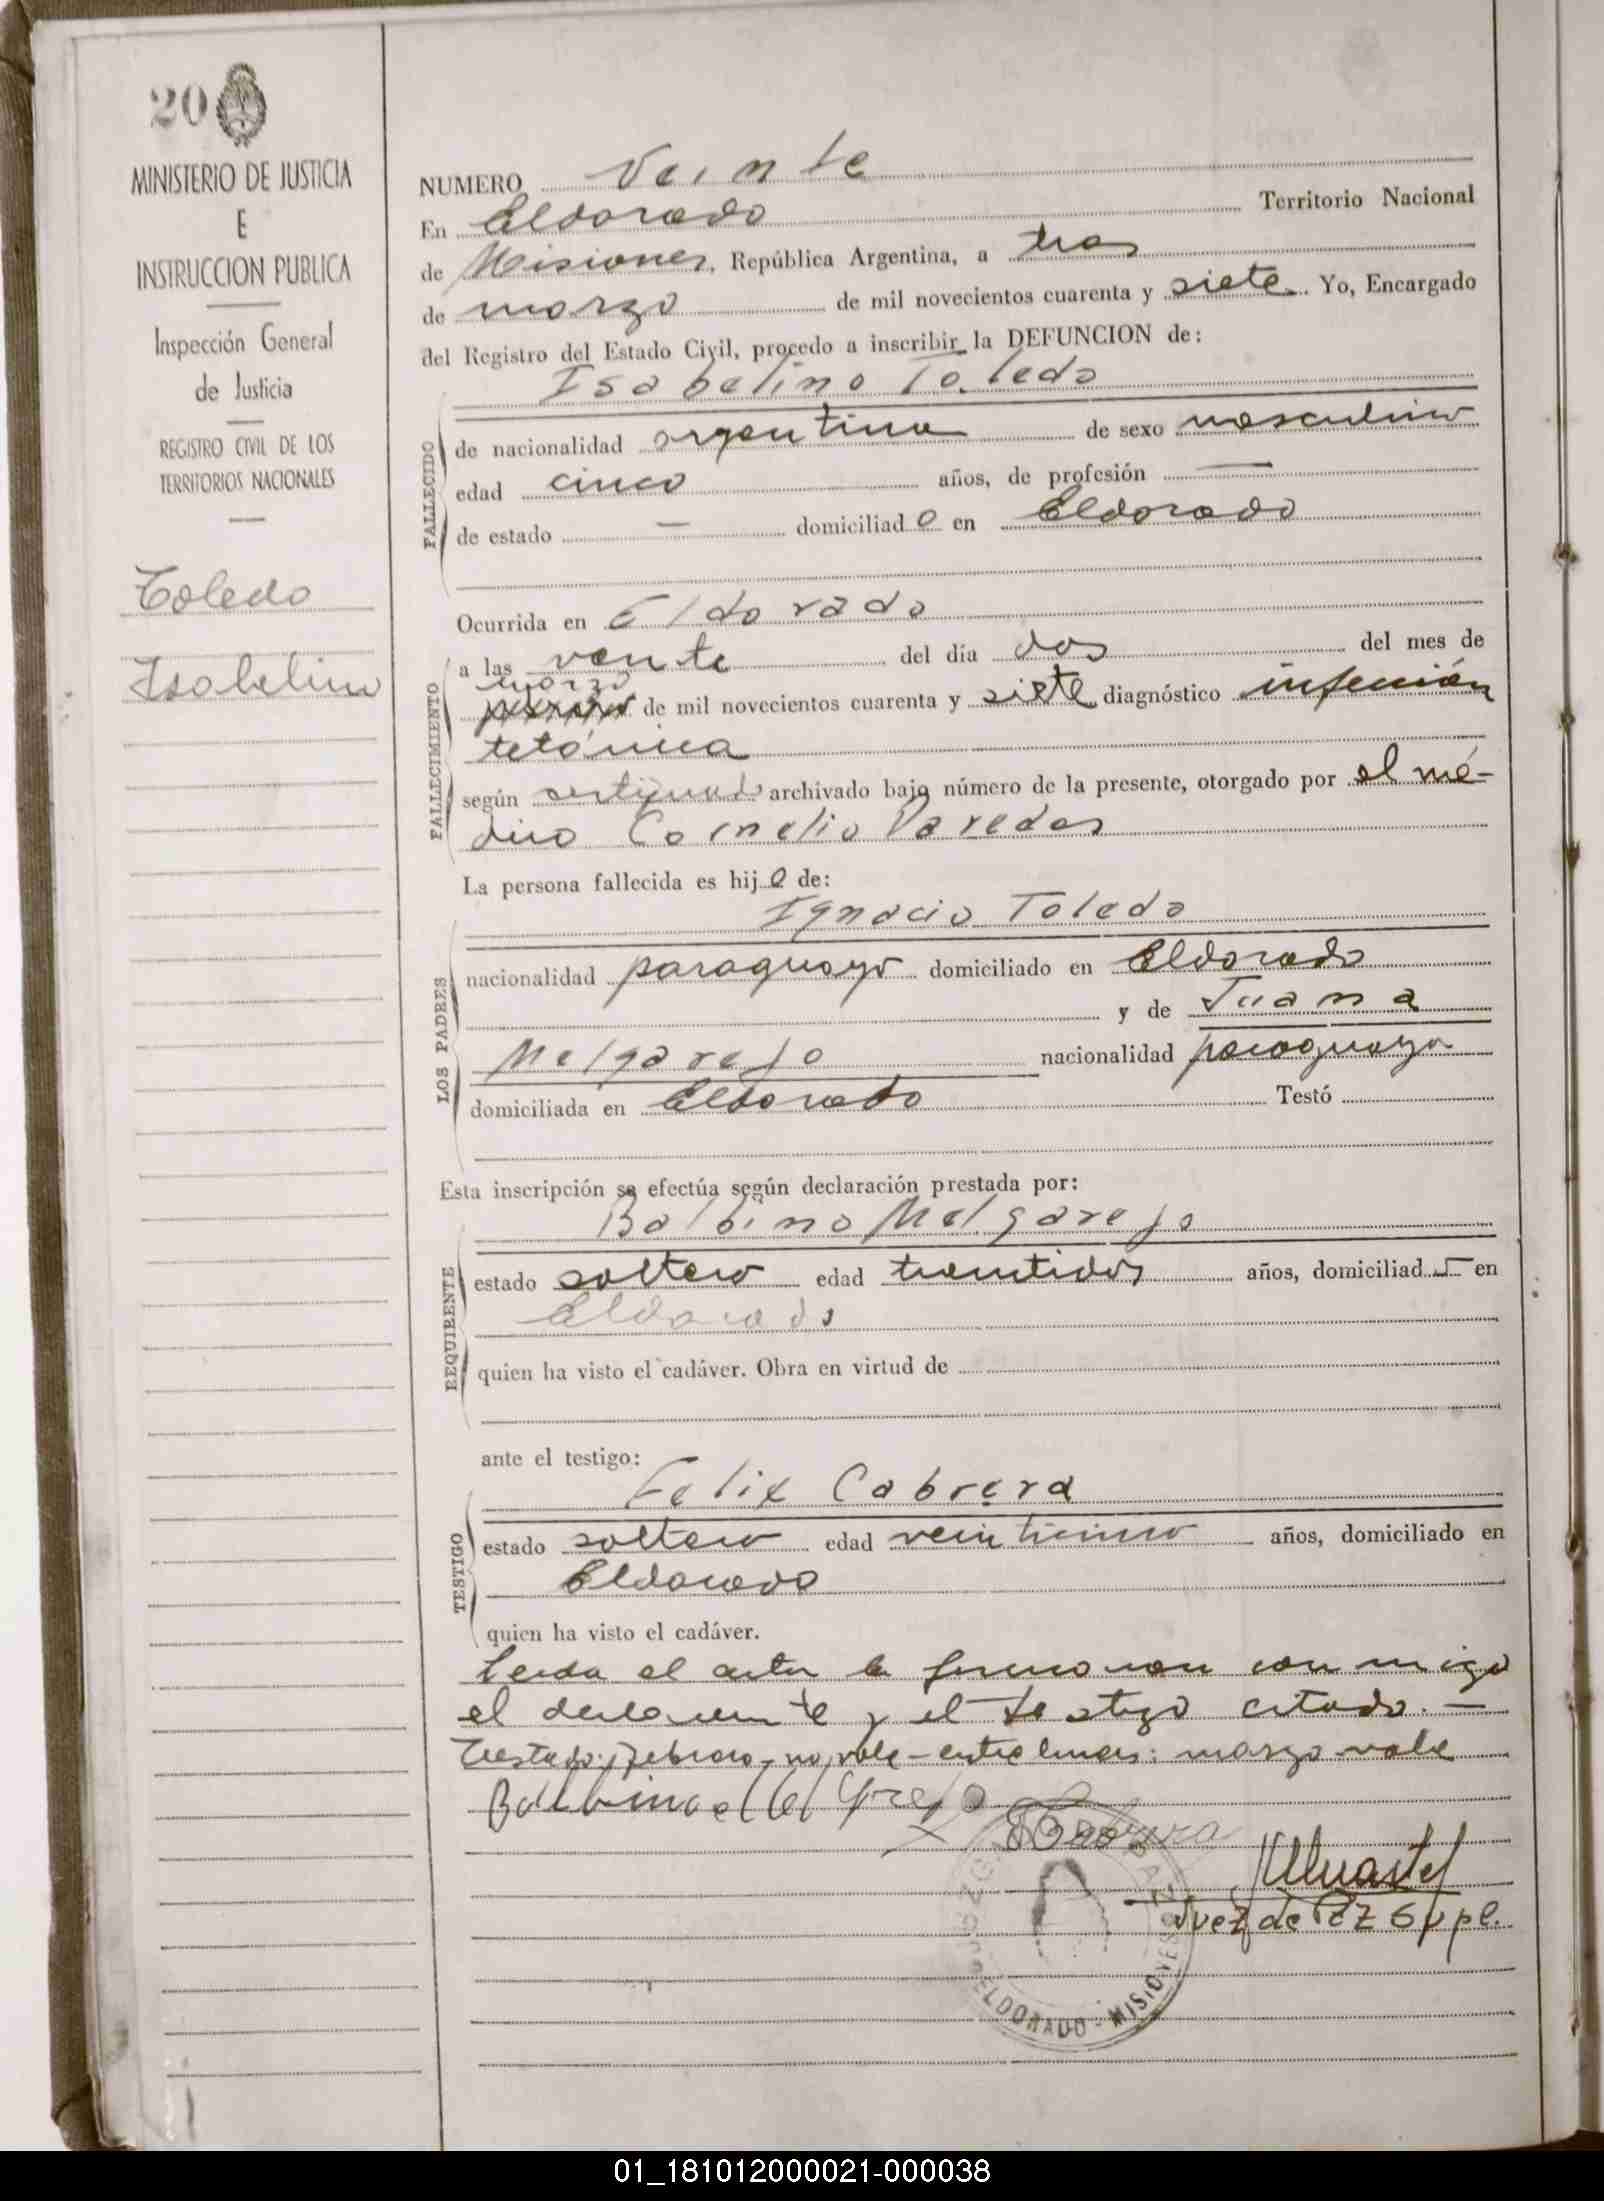 20
MINISTERIO DE JUSTICIA
E
INSTRUCCION PUBLICA
Inspección General
de Justicia
REGISTRO CIVIL DE LOS
TERRITORIOS NACIONALES
Toledo
Isabelino
NUMERO Veinte
En Eldorado Territorio Nacional
de Misiones, República Argentina, a tres
de marzo de mil novecientos cuarenta y siete. Yo, Encargado
del Registro del Estado Civil, procedo a inscribir la DEFUNCION de:
Isabelino Toledo
FALLECIDO
de nacionalidad argentina de sexo masculino
edad cinco años, de profesión —
de estado — domiciliado en Eldorado
Ocurrida en Eldorado
FALLECIMIENTO
a las veinte del día dos del mes de
marzo
febrero de mil novecientos cuarenta y siete diagnóstico infección
tetánica
según certificado archivado bajo número de la presente, otorgado por el mé-
dico Cornelio Paredes
La persona fallecida es hijo de:
Ignacio Toledo
LOS PADRES
nacionalidad paraguayo domiciliado en Eldorado
y de Juana
Melgarejo nacionalidad paraguaya
domiciliada en Eldorado Testó
Esta inscripción se efectúa según declaración prestada por:
Balbino Melgarejo
REQUIRENTE
estado soltero edad treintidos años, domiciliado en
Eldorado
quien ha visto el cadáver. Obra en virtud de
ante el testigo:
Felix Cabrera
TESTIGO
estado soltero edad veinticinco años, domiciliado en
Eldorado
quien ha visto el cadáver.
Leida el acta la firmaron conmigo
el declarante y el testigo citado. —
Testado: febrero - no vale - entre lineas: marzo vale
Balbino Melgarejo
Cabrera
Juez de Paz Supl.
JUZGADO DE PAZ
ELDORADO - MISIONES
01_181012000021-000038